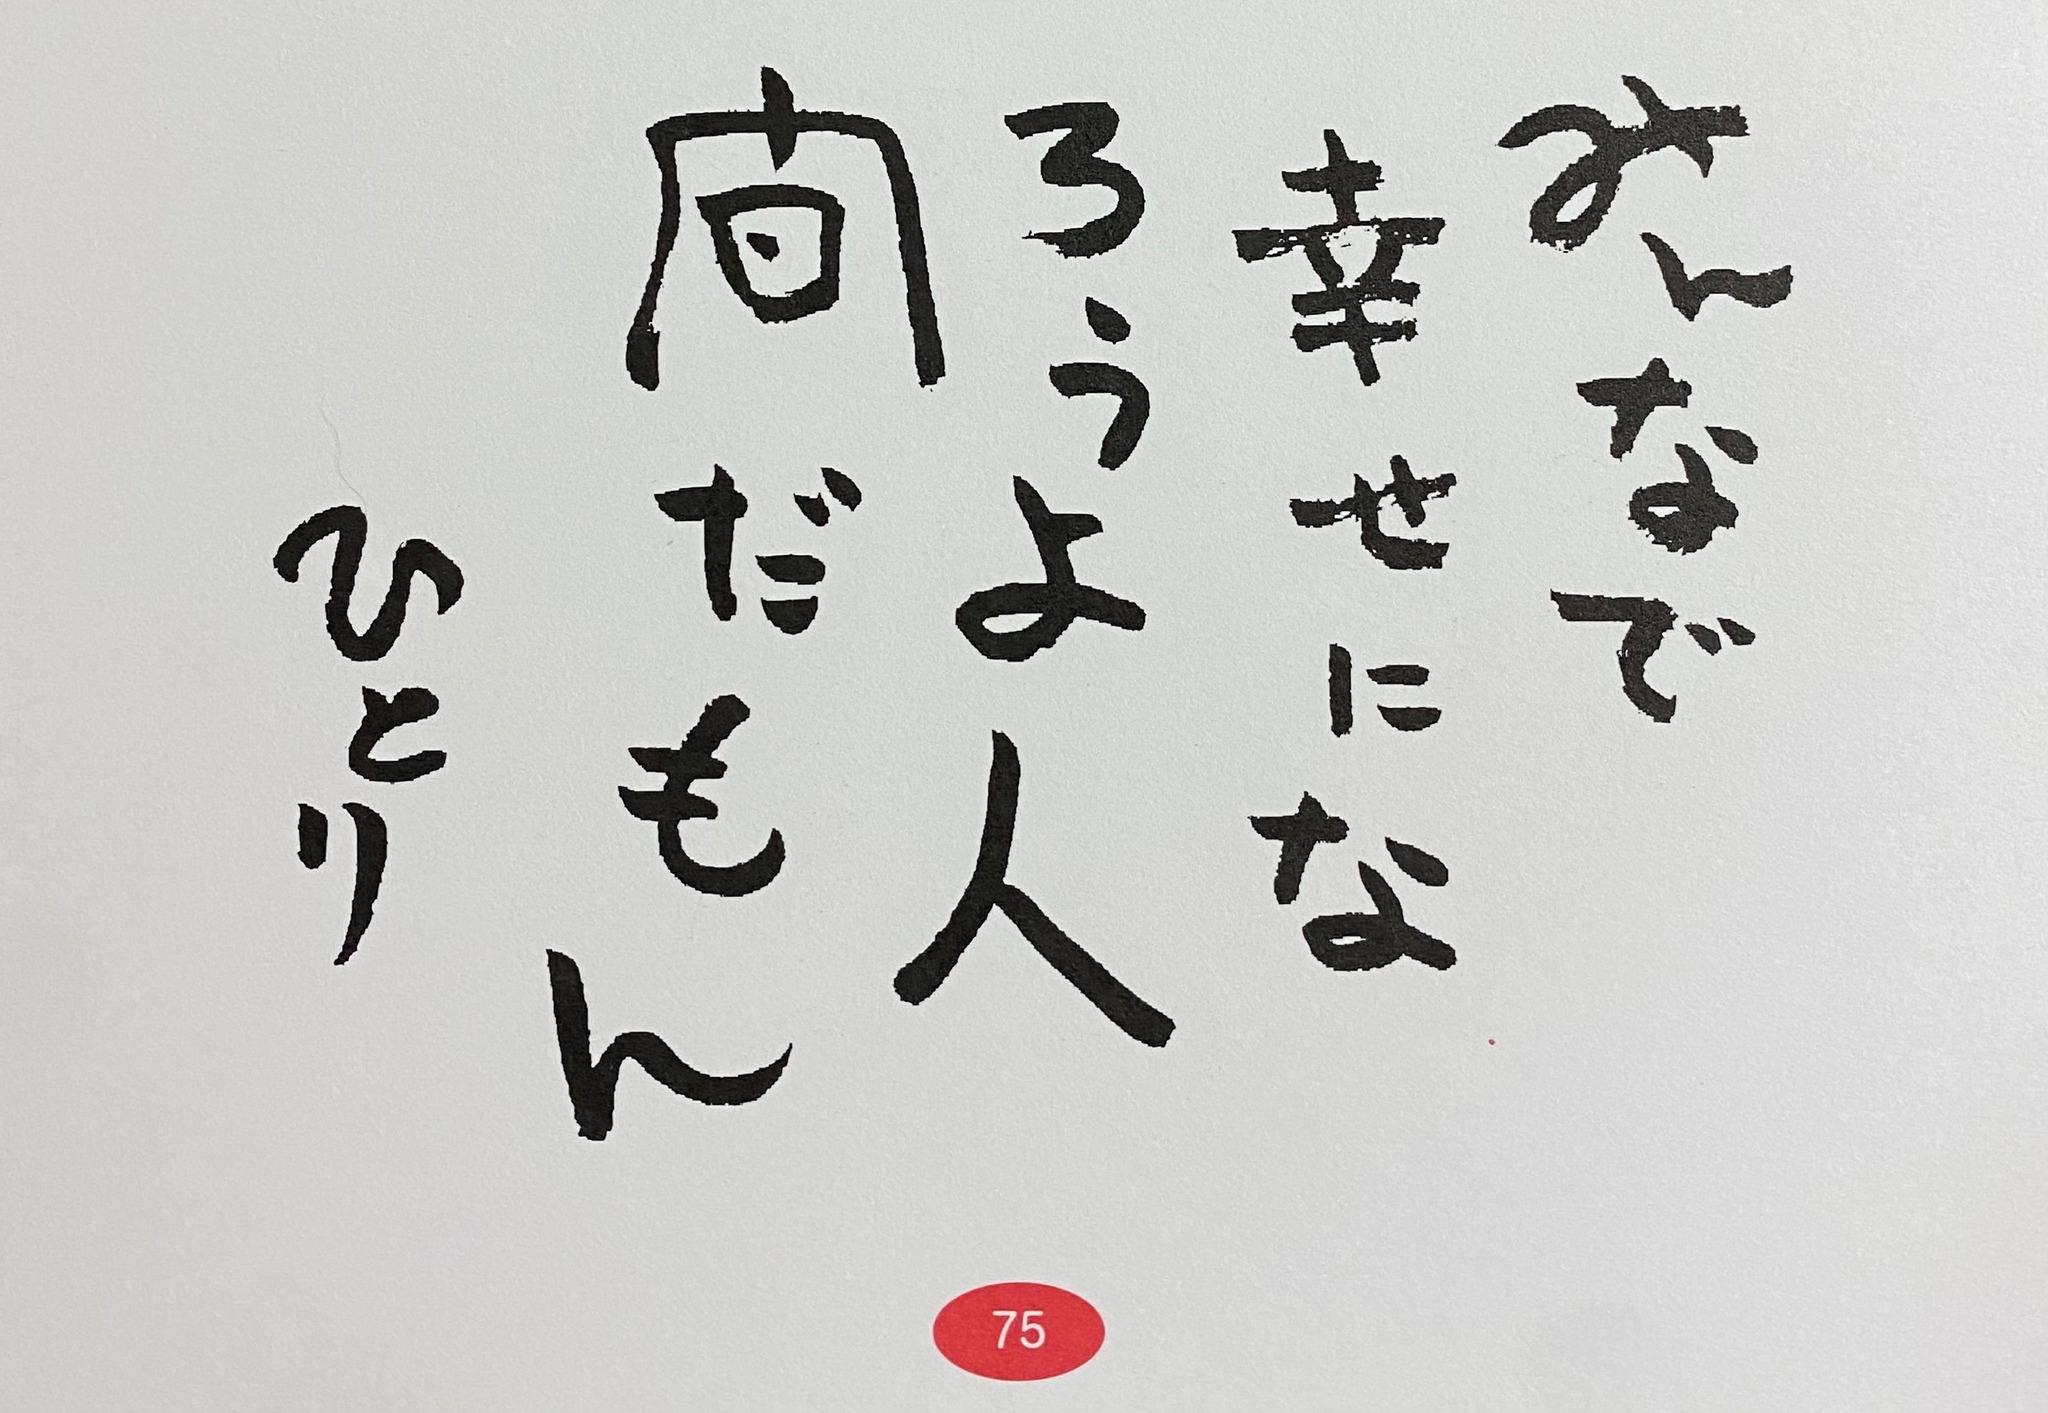 みんなで
幸せにな
ろうよ人
間だもん
ひとり
75